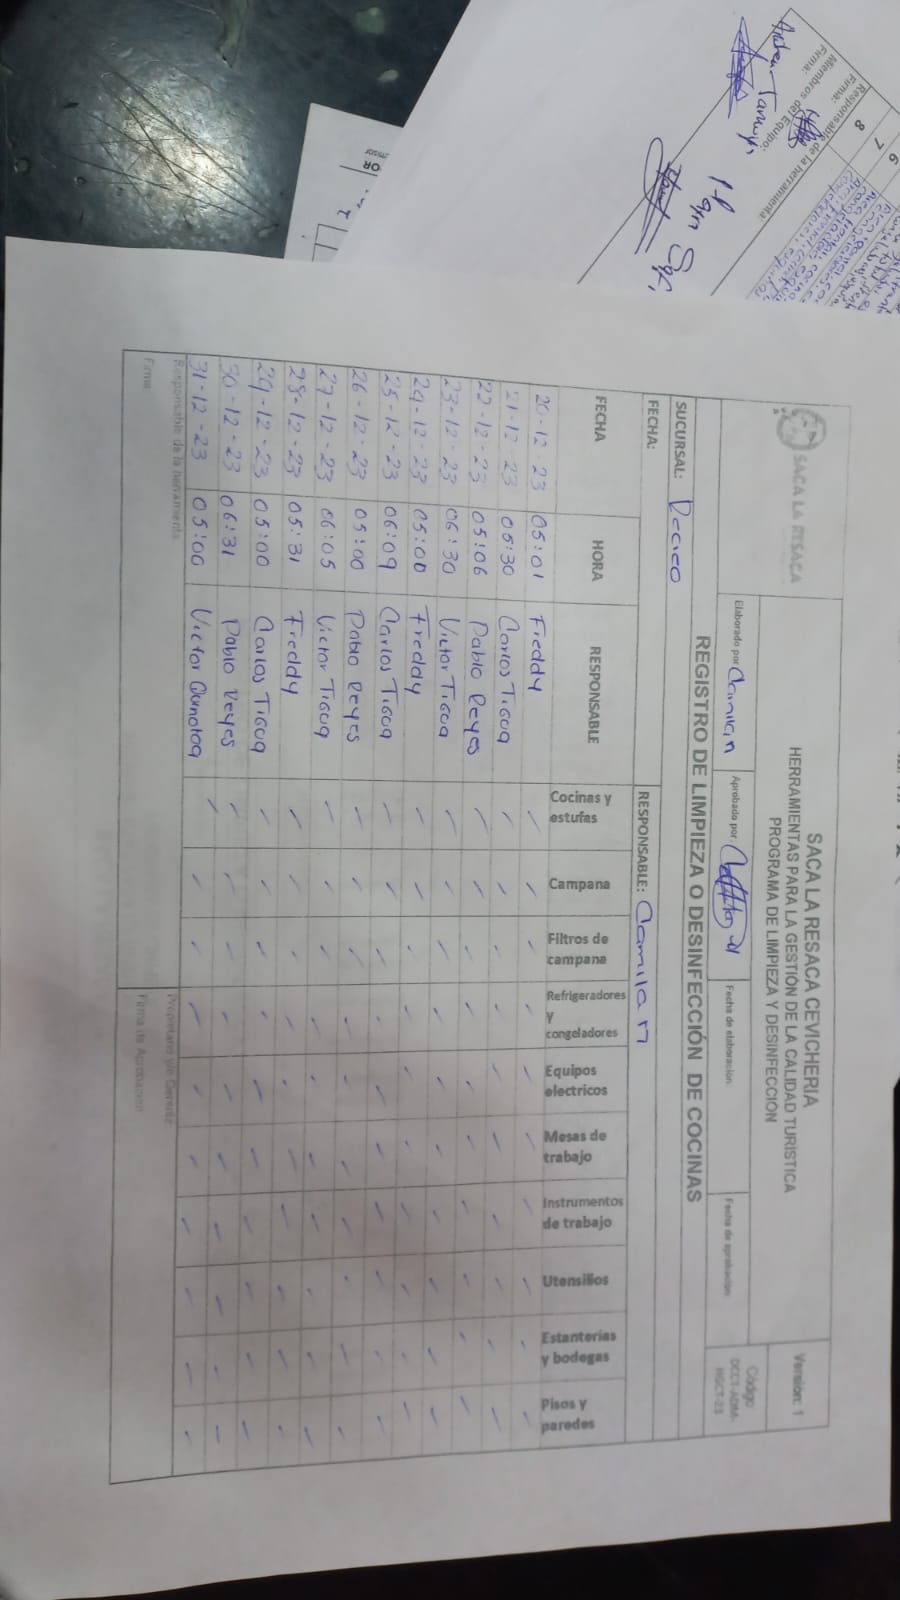 SACA LA RESACA
SACA LA RESACA CEVICHERIA
HERRAMIENTAS PARA LA GESTIÓN DE LA CALIDAD TURISTICA
PROGRAMA DE LIMPIEZA Y DESINFECCIÓN
Version: 1
Elaborado por: Camila n
Aprobado por:
Fecha de elaboracion:
Fecha de aprobacion:
Código
DCCT-ADM-
HGCT-23
REGISTRO DE LIMPIEZA O DESINFECCIÓN DE COCINAS
SUCURSAL: Recreo
FECHA: RESPONSABLE: Camila n
FECHA HORA RESPONSABLE Cocinas y estufas Campana Filtros de campana Refrigeradores y congeladores Equipos electricos Mesas de trabajo Instrumentos de trabajo Utensilios Estanterias y bodegas Pisos y paredes
20-12-23 05:01 Freddy ✓ ✓ ✓ ✓ ✓ ✓ ✓ ✓ ✓ ✓
21-12-23 05:30 Carlos Tigua ✓ ✓ ✓ ✓ ✓ ✓ ✓ ✓ ✓ ✓
22-12-23 05:06 Pablo Reyes ✓ ✓ ✓ ✓ ✓ ✓ ✓ ✓ ✓ ✓
23-12-23 06:30 Victor Tigua ✓ ✓ ✓ ✓ ✓ ✓ ✓ ✓ ✓ ✓
24-12-23 05:00 Freddy ✓ ✓ ✓ ✓ ✓ ✓ ✓ ✓ ✓ ✓
25-12-23 06:09 Carlos Tigua ✓ ✓ ✓ ✓ ✓ ✓ ✓ ✓ ✓ ✓
26-12-23 05:00 Pablo Reyes ✓ ✓ ✓ ✓ ✓ ✓ ✓ ✓ ✓ ✓
27-12-23 06:05 Victor Tigua ✓ ✓ ✓ ✓ ✓ ✓ ✓ ✓ ✓ ✓
28-12-23 05:31 Freddy ✓ ✓ ✓ ✓ ✓ ✓ ✓ ✓ ✓ ✓
29-12-23 05:00 Carlos Tigua ✓ ✓ ✓ ✓ ✓ ✓ ✓ ✓ ✓ ✓
30-12-23 06:31 Pablo Reyes ✓ ✓ ✓ ✓ ✓ ✓ ✓ ✓ ✓ ✓
31-12-23 05:00 Victor ✓ ✓ ✓ ✓ ✓ ✓ ✓ ✓ ✓ ✓
Responsable de la herramienta Propietario y/o Gerente
Firma Firma de Aprobacion
6
7
8
Responsable de la herramienta:
Firma:
Miembros del Equipo:
Firma: